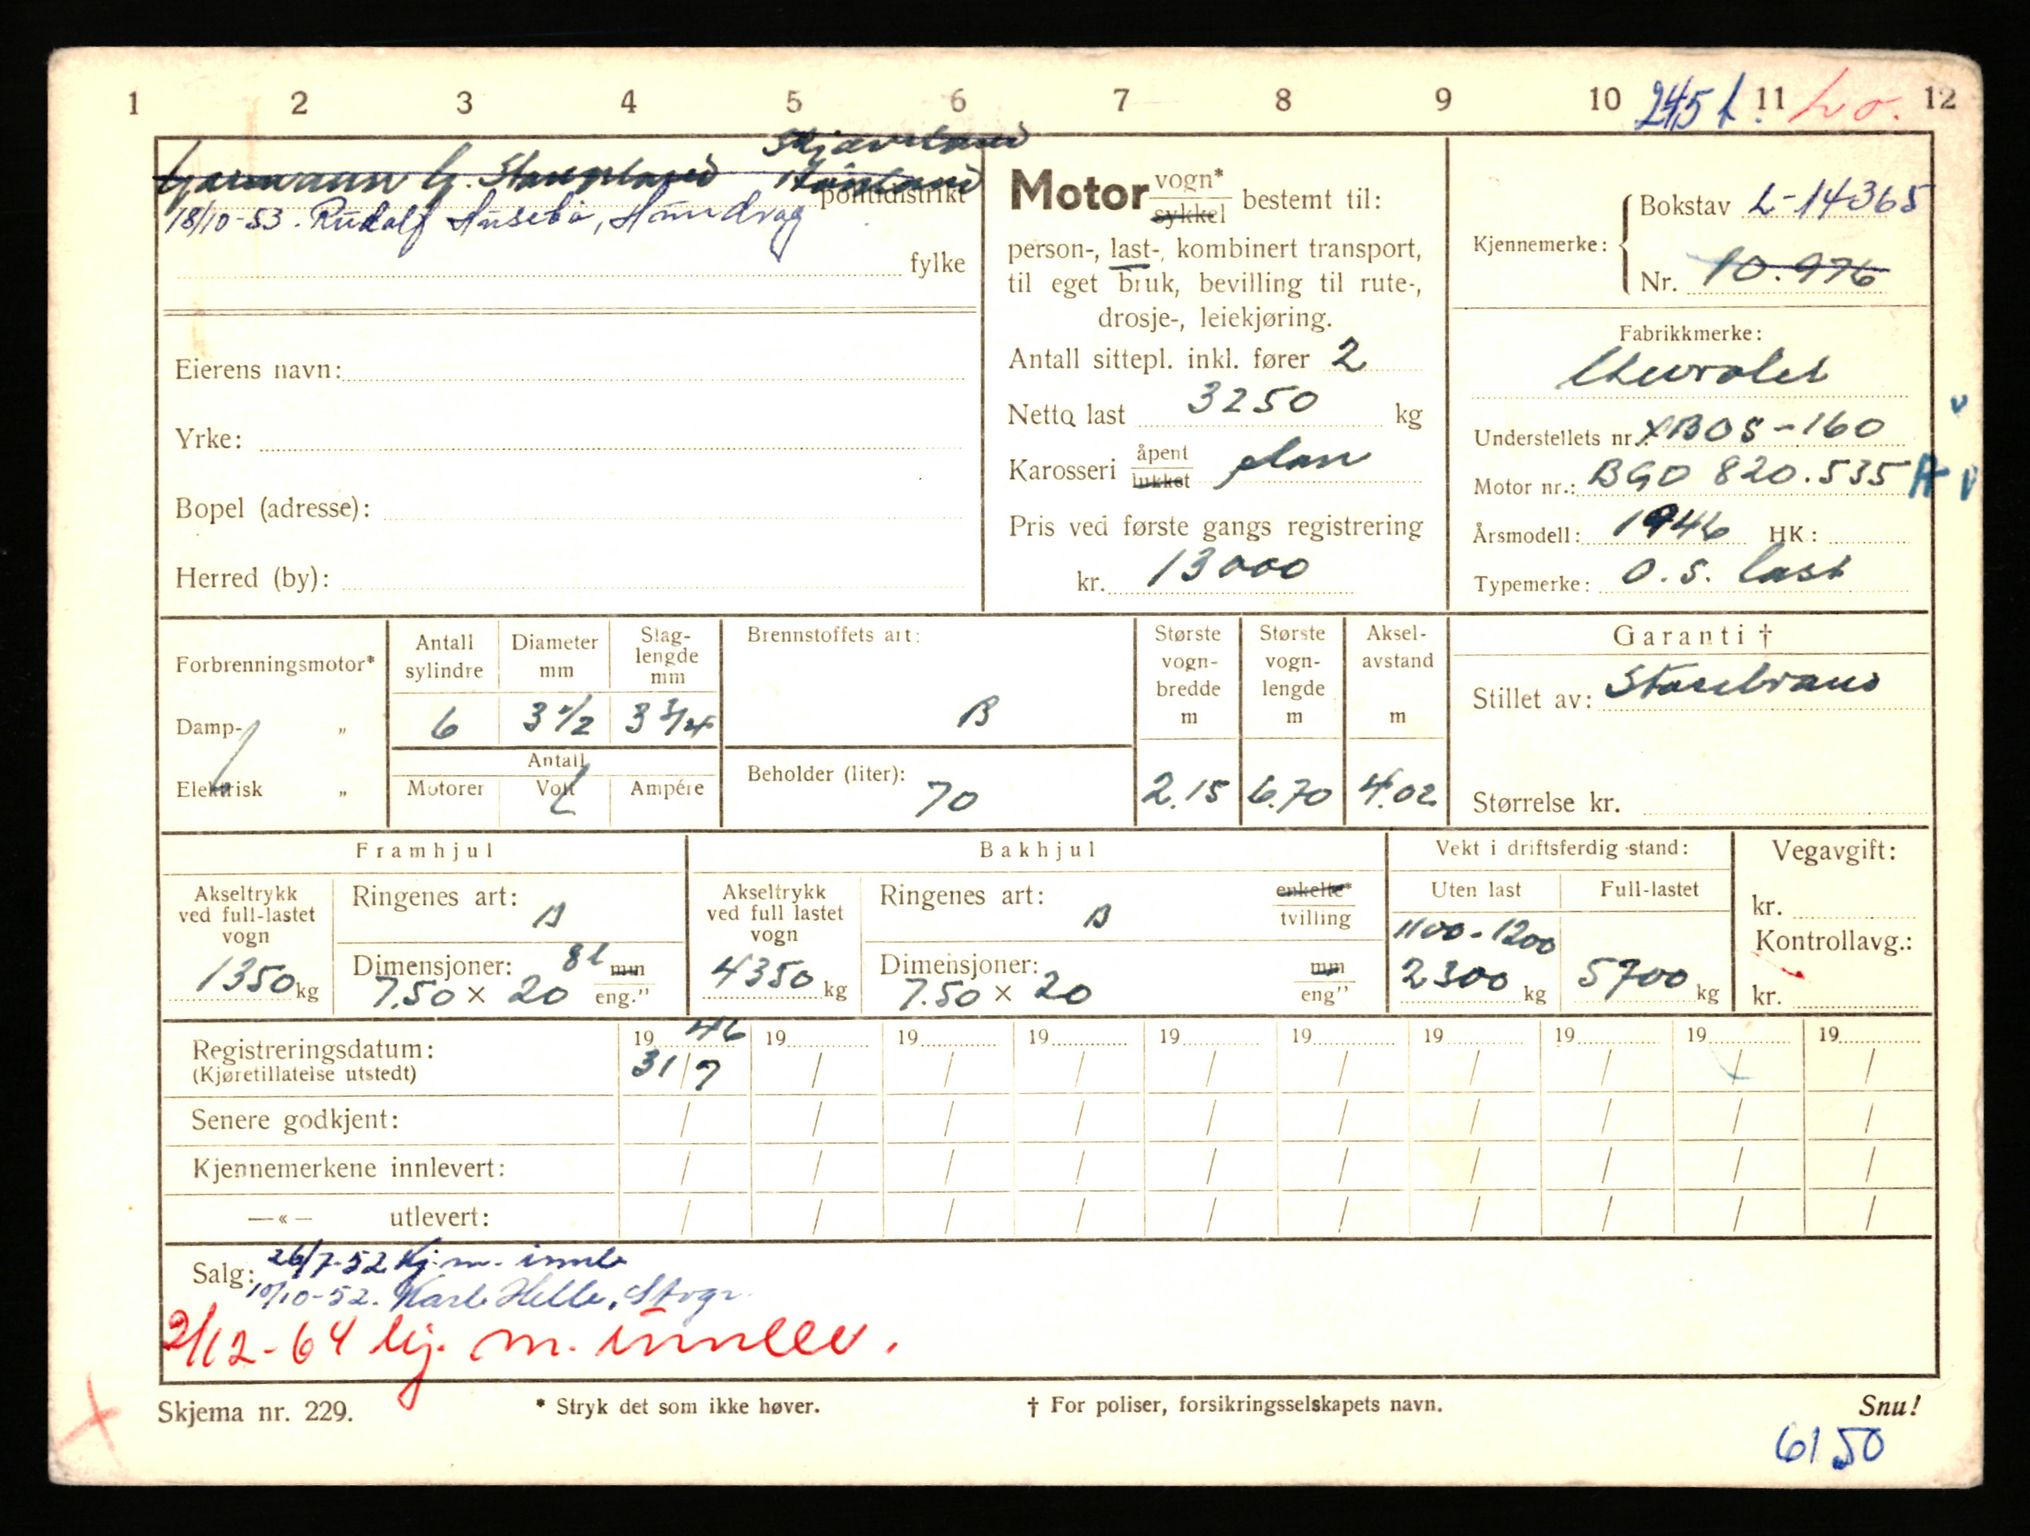 1 2 3 4 5 6 7 8 9 10 245 t. 11 12
politidistrikt
18/10-53. Rudolf Husebø, Hundvåg
fylke
Eierens navn:
Yrke:
Bopel (adresse):
Herred (by):
Motor vogn* sykkel bestemt til:
person-, last-, kombinert transport,
til eget bruk, bevilling til rute-,
drosje-, leiekjøring.
Antall sittepl. inkl. fører 2
Netto last 3250 kg
Karosseri åpent lukket plan
Pris ved første gangs registrering
kr. 13000
Kjennemerke: Bokstav L-14365
Nr. 10.976
Fabrikkmerke:
Chevrolet
Understellets nr.: XBOS-160
Motor nr.: BGD 820.535
Årsmodell: 1946 HK:
Typemerke: O.S. last
Forbrenningsmotor*
Damp- „
Elektrisk „
Antall sylindre
6
Diameter mm
3 1/2
Slag-lengde mm
3 3/4
Antall
Motorer Volt Ampére
Brennstoffets art:
B
Beholder (liter):
70
Største vogn-bredde m
2.15
Største vogn-lengde m
6.70
Aksel-avstand m
4.02
Garanti †
Stillet av: Storebrand
Størrelse kr.
Framhjul
Akseltrykk ved full-lastet vogn
1350 kg
Ringenes art:
B
Dimensjoner: 8l mm
7.50 × 20 eng.”
Bakhjul
Akseltrykk ved full lastet vogn
4350 kg
Ringenes art: enkelte*
B tvilling
Dimensjoner: mm
7.50 × 20 eng”
Vekt i driftsferdig stand:
Uten last Full-lastet
1100-1200
2300 kg 5700 kg
Vegavgift:
kr.
Kontrollavg.:
kr.
Registreringsdatum: 1946 19 19 19 19 19 19 19 19 19
(Kjøretillatelse utstedt) 31/7 / / / / / / / / /
Senere godkjent: / / / / / / / / / /
Kjennemerkene innlevert: / / / / / / / / / /
—«— utlevert: / / / / / / / / / /
Salg: 26/7-52 Kj.m. innl.
10/10-52. Karl Helle, Stvgr
2/12-64 kj. m. innlev.
Skjema nr. 229.
* Stryk det som ikke høver.
† For poliser, forsikringsselskapets navn.
Snu!
6150